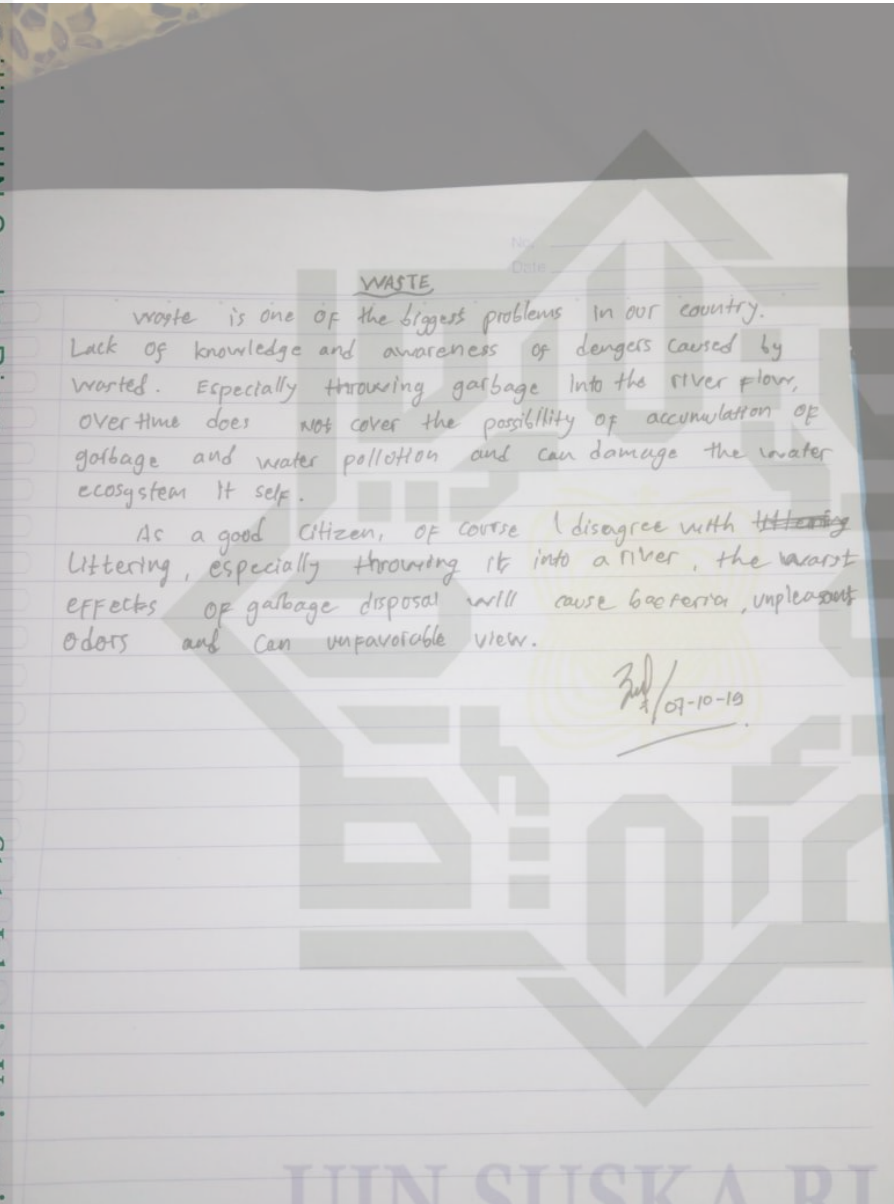 No.
Date
WASTE
waste is one of the biggest problems in our country.
Lack of knowledge and awareness of dengers caused by
wasted. Especially throwing garbage into the river flow,
over time does not cover the possibility of accumulation of
garbage and water pollution and can damage the water
ecosystem it self.
As a good citizen, of course I disagree with littering
Littering, especially throwing it into a river, the warst
effects of garbage disposal will cause bacteria, unpleasant
odors and can unfavorable view.
07-10-19
UIN SUSKA RI